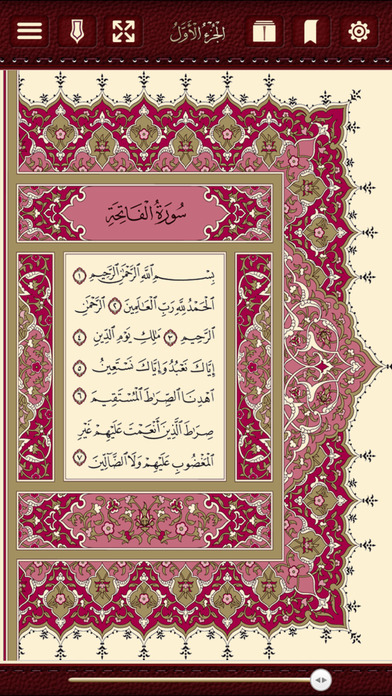 الجزء الأول
سورة الفاتحة
بسم الله الرحمن الرحيم ١
الحمد لله رب العالمين ٢ الرحمن
الرحيم ٣ ملك يوم الدين ٤
إياك نعبد وإياك نستعين ٥
اهدنا الصرط المستقيم ٦
صرط الذين أنعمت عليهم غير
المغضوب عليهم ولا الضالين ٧